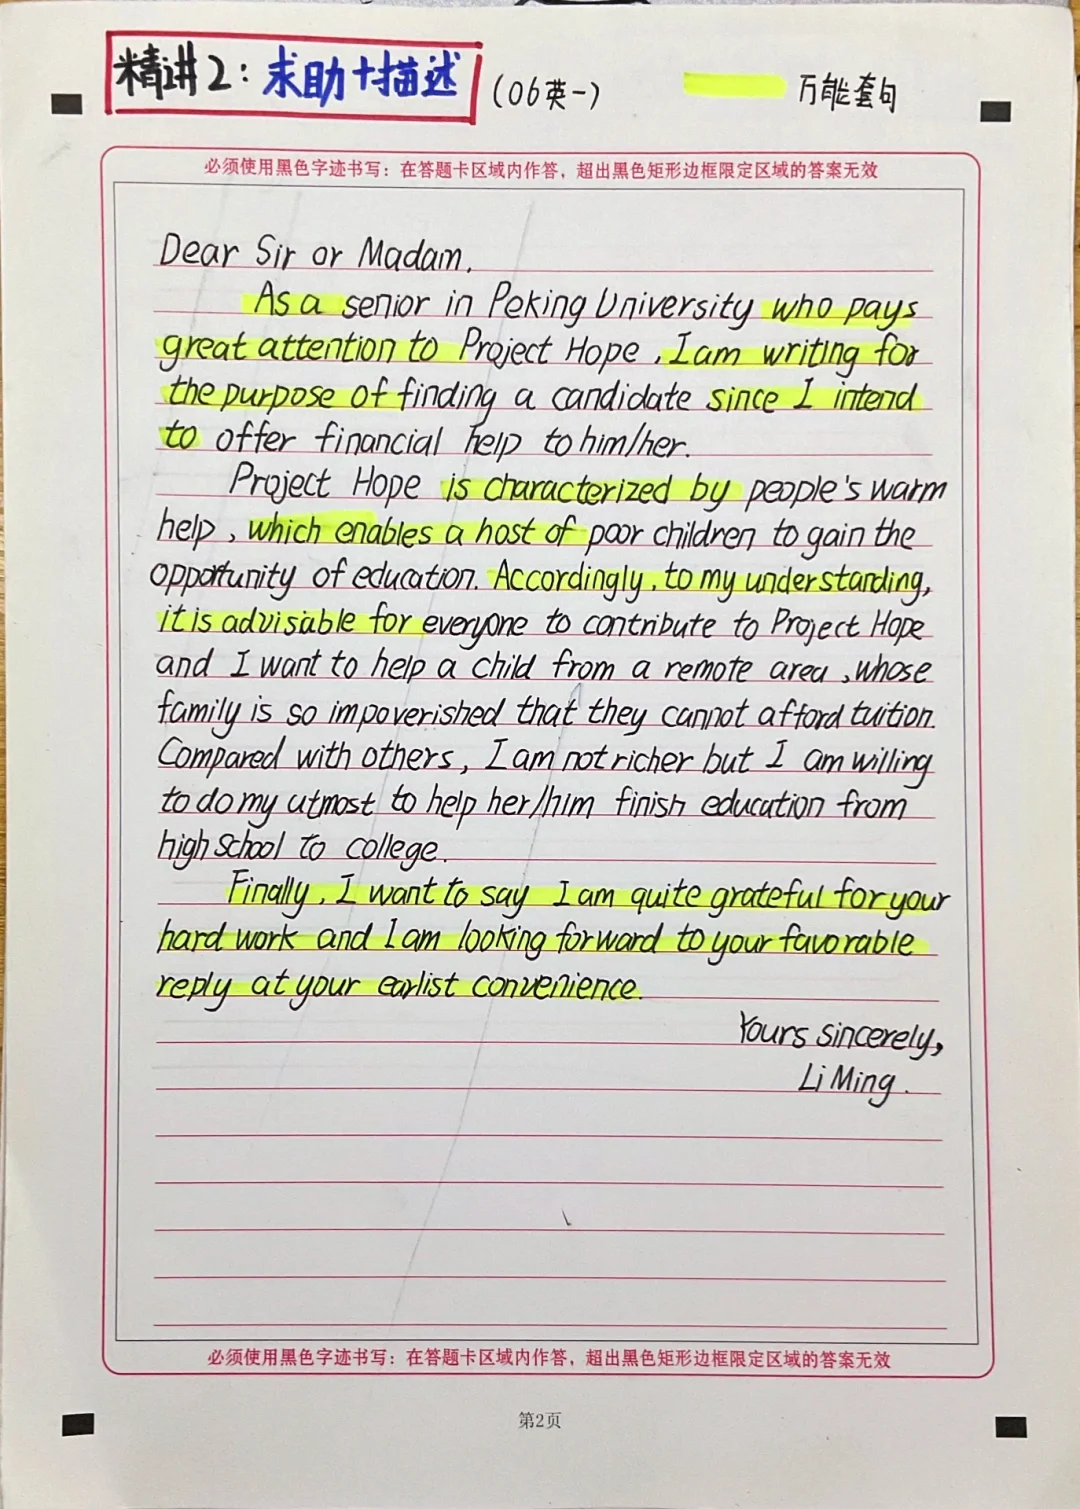 精讲2：求助+描述 （06英一） 万能套句
必须使用黑色字迹书写：在答题卡区域内作答，超出黑色矩形边框限定区域的答案无效
Dear Sir or Madam,
As a senior in Peking University who pays
great attention to Project Hope, I am writing for
the purpose of finding a candidate since I intend
to offer financial help to him/her.
Project Hope is characterized by people's warm
help, which enables a host of poor children to gain the
opportunity of education. Accordingly, to my understanding,
it is advisable for everyone to contribute to Project Hope
and I want to help a child from a remote area, whose
family is so impoverished that they cannot afford tuition.
Compared with others, I am not richer but I am willing
to do my utmost to help her/him finish education from
high school to college.
Finally, I want to say I am quite grateful for your
hard work and I am looking forward to your favorable
reply at your earlist convenience.
Yours sincerely,
Li Ming.
必须使用黑色字迹书写：在答题卡区域内作答，超出黑色矩形边框限定区域的答案无效
第2页